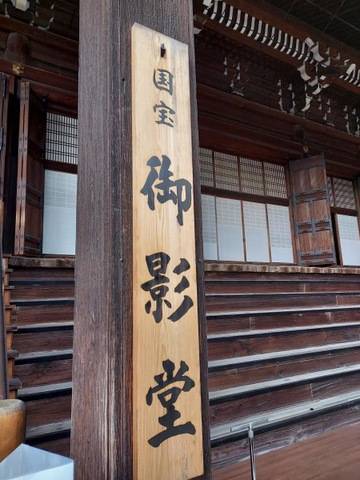 国宝
御影堂